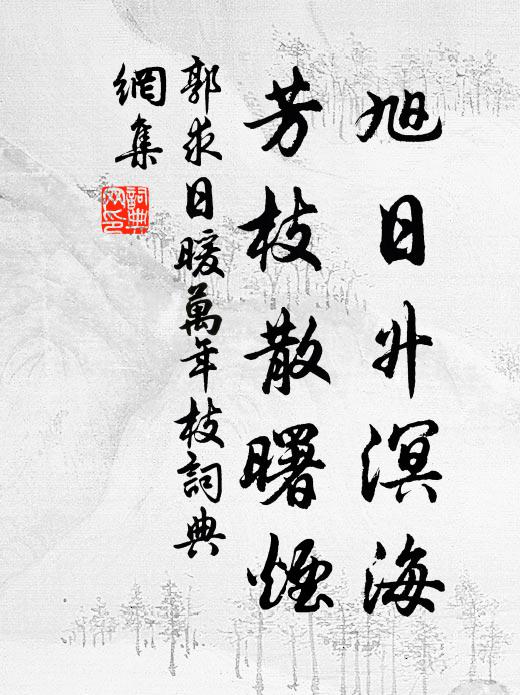 旭日升溟海
芳枝散曙煙
郭求日暖萬年枝詞典
網集
詞典網印